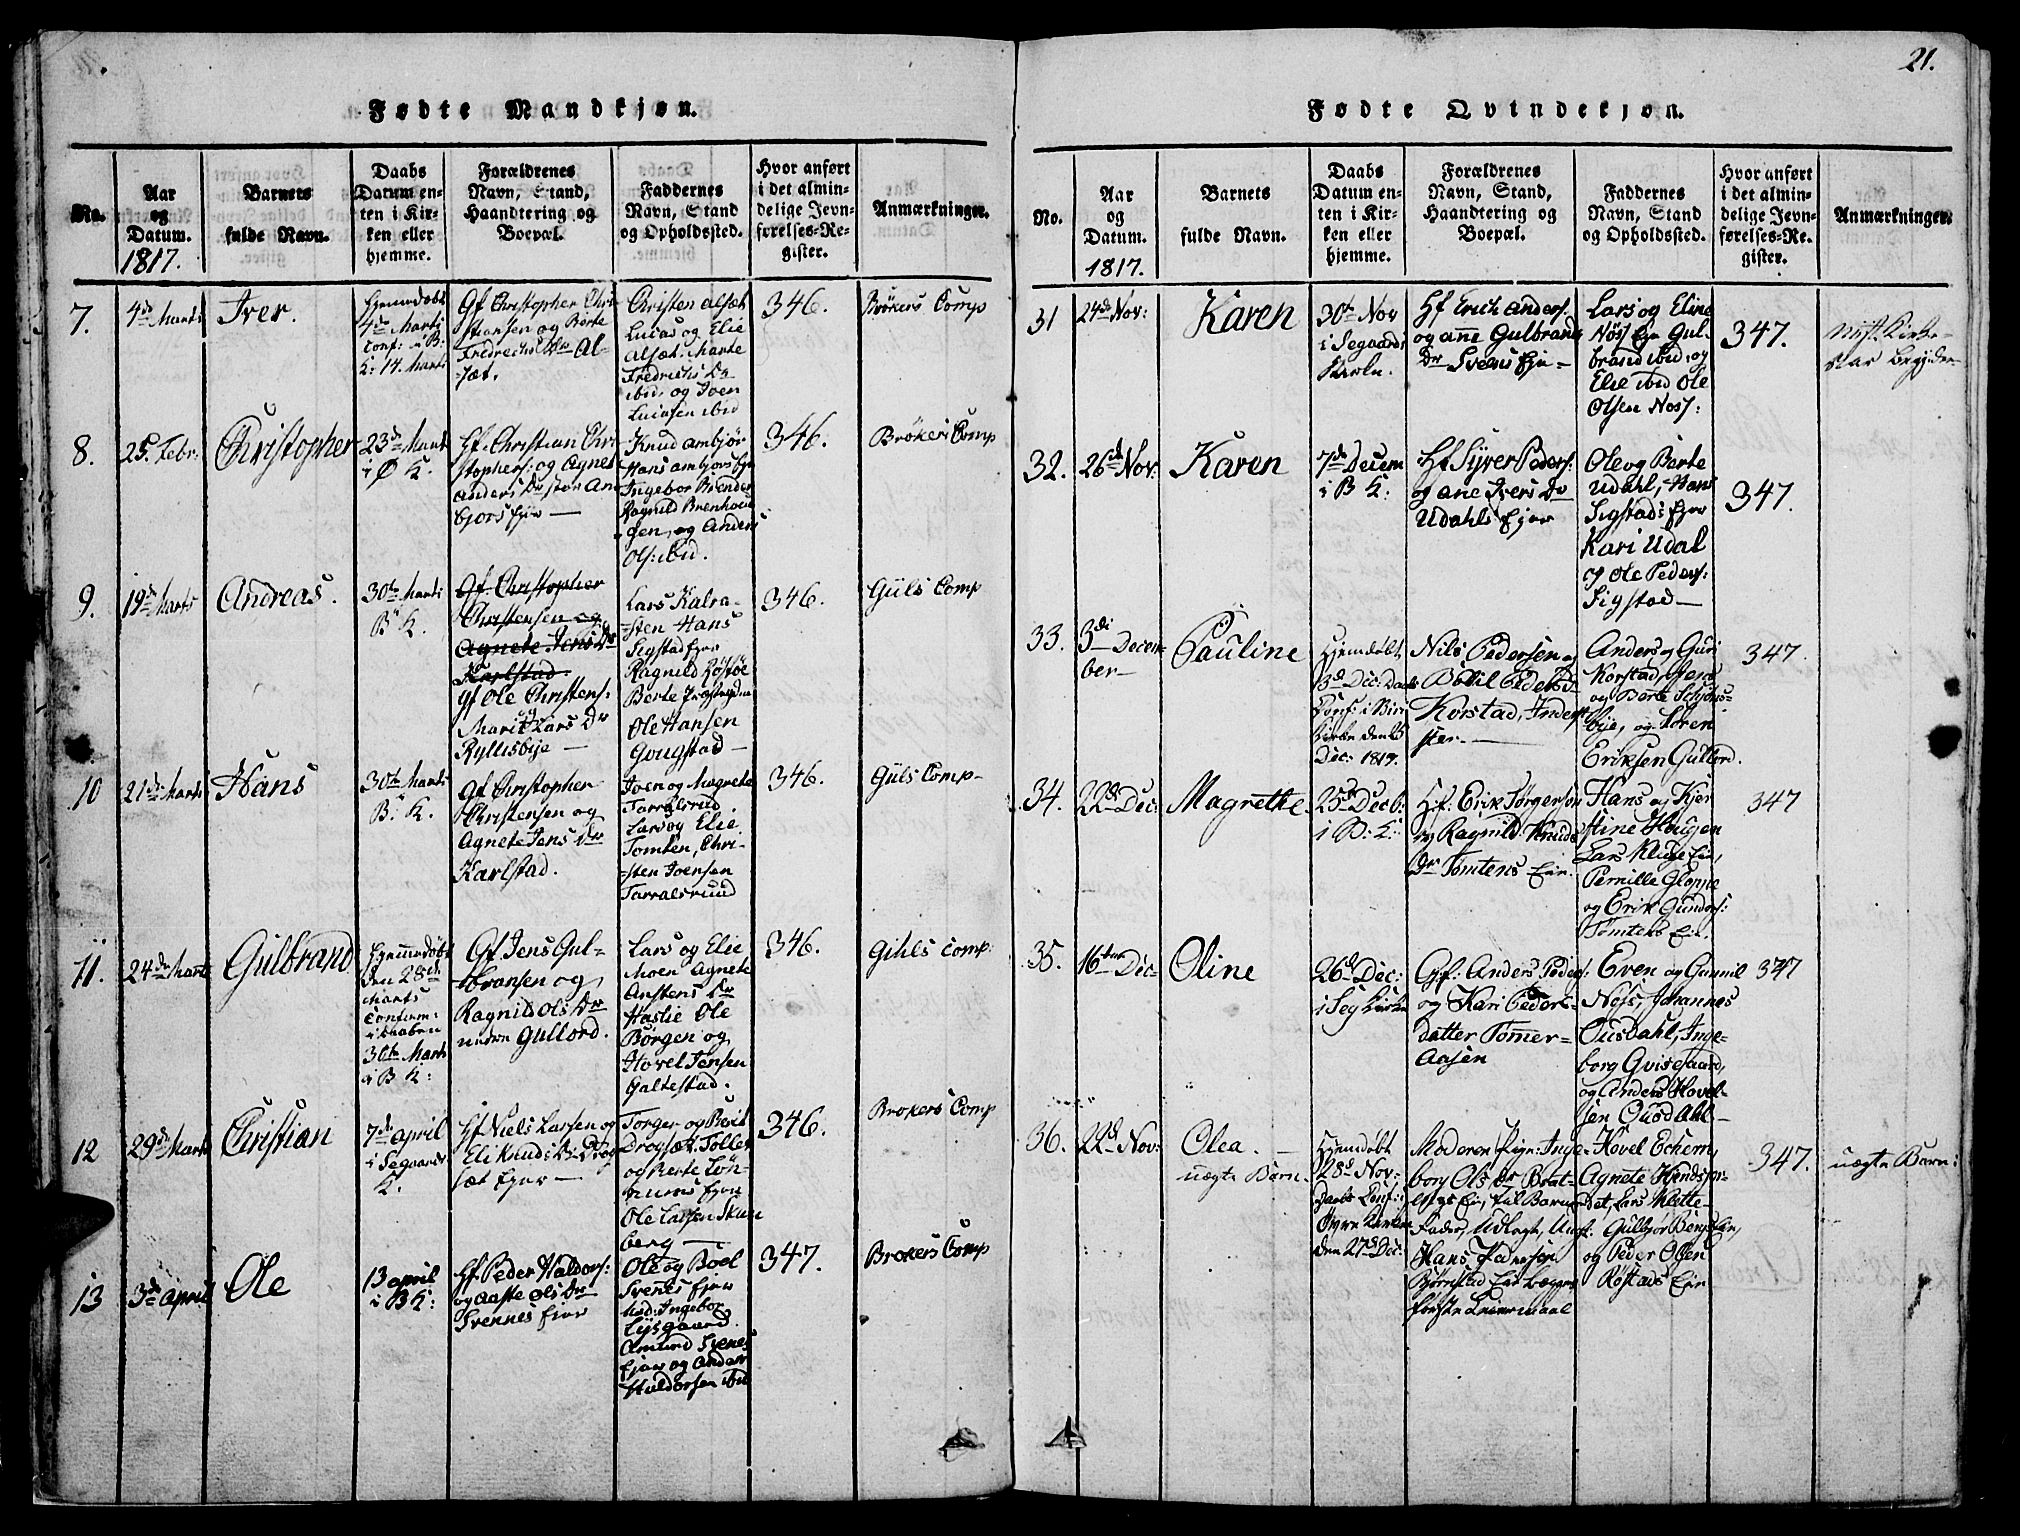 21.
Fødte Mandkjøn.
No.
Aar
og
Datum.
1817.
Barnets
fulde Navn.
Daabs
Datum en-
ten i Kir-
ken eller
hjemme.
Forældrenes
Navn, Stand,
Haandtering og
Boepæl.
Faddernes
Navn, Stand
og Opholdssted.
Hvor anført
i det almin-
delige Jevn-
førelses-Re-
gister.
Anmærkninger.
7.
4de Marts
Iver.
Hjemmedøbt
4de Marts
Conf: i B:
K: 14. Marts
Gf Christopher Chri-
stiansen og Berte
Fredrichs Dr Al-
sæt.
Christen Alsæt
Lucas og Elie
Alsæt. Marte
Fredrichs Da
ibid. og Joen
Lucasen ibid
346.
Brøkers Comp
8.
25. Febr:
Christopher
23de Marts
i Ø K.
Hf. Christian Chri
stophers: og Agnet
Anders Dr
bjørs Ejer —
Knud Ambjør
Hans Ambjors
Ingebor
Ragnild
gen, og Anders
Ols: ibid.
346.
Brøkers Comp
9.
19de Marts
Andreas.
30te Marts
B: K.
Gf. Christopher
Christensen og
Agnete Jens Dr
Karlstad.
Gf Ole Christens:
og
Marit Lars Dr
Ryllisbye —
Lars Kalra-
sten Hans
Sigstad Ejer
Ragnild
Berte
Ole Hansen
Gougstad —
346.
Güls Comp
10
21de Marts
Hans
30te Marts
B. K.
Gf. Christopher
Christensen og
Agnete Jens Dr
Karlstad.
Joen og Magrete
Tarralsrud.
Lars og Elie
Tomten, Chri-
sten Joensen
Tarralsrund
346.
Güls Comp
11.
24de Marts
Gülbrand
Hjemmedøbt
den 28de
Marts
Confirm:
i Daaben
30te Marts
i B K:
Gf. Jens Gul-
bransen og
Ragnild Ols Dr
under Gullord.
Lars og Elie
Moen Agnete
Anstens Dr
Haslie Ole
Børgen og
Hovel Jensen
Galtestad.
346.
Gihls Comp:
12
29de Marts
Christian
7de April
i Segaards
K.
Hf Niels Larsen og
Eli Knuds Dr Drog
sæt Ejer —
Torger og Berit
Drogsæt. Tollef
og Berte Løn-
nums Ejer
Ole Larsen Skun
berg —
346.
Brokers Comp
13
3de April
Ole
13 April
i B K:
Hf. Peder Haldors:
og Aaste Ols Dr
Svennes Ejer
Ole og Boel
Svenes Ejer
Ingebor
Lysgaard.
Amund Svenes
Ejer og Anders
Haldorsen ibid
347.
Brokers Comp
Fødte Qvindekjøn.
No.
Aar
og
Datum.
1817.
Barnets
fulde Navn.
Daabs
Datum en-
ten i Kir-
ken eller
hjemme.
Forældrenes
Navn, Stand,
Haandtering og
Boepæl.
Faddernes
Navn, Stand
og Opholdssted.
Hvor anført
i det almin-
delige Jevn-
førelses-Re-
gister.
Anmærkninger.
31
24de Nov:
Karen
30te Nov
i Segaards
Kirke.
Hf Erich Anders:
og Anne Gulbrands
Dr Sveens Eje —
Lars og Eline
Nøss Eje Gul-
brand ibid. og
Elie ibid Ole
Olsen Noss:
347.
32.
26de Nov:
Karen
7de Decem
i B K:
Hf Syver Peders:
og Ane Ivers Dr
Udahls Ejer
Ole og Berte
Udahl, Hans
Sigstad: Ejer
Kari Udal
og Ole Peders:
Sigstad —
347.
33.
3di Decem-
ber —
Pauline
Hjemdøbt
3de Dec: Daabs
Conf i Birie
Kirke den
Dec: 1817.
Nils Pedersen og
Bodil Peders D.
Korstad, Inder-
ster. —
Anders og Guri
Korstad,
og Berte Schjøns-
bye, og Søren
Eriksen Gullord.
347.
34.
22de Dec:
Magrethe.
25de Decb:
i B: K:
Hf: Erik Jørgensen
og Ragnild Knuds
Dr Tomtens Eie.
Hans og Kjer
stine Hougen
Lars Kluge Eie,
Pernille Gloppe
og Erik Gunders:
Tomtens Eie.
347
35.
16ten Dec:
Oline
26de Dec:
i Seg Kirke
Gf: Anders Peders:
og Kari Peders-
datter Tømer-
Aasen
Even og Gunnil
Nøss, Johannes
Ousdahl, Inge-
borg Qvisgaard,
og Anders Hovel-
sen Ousdahl —
347
36.
22de Nov:
Olea. —
uægte Barn.
Hjemdøbt
28de Nov:
Daabs Conf: i
Øvre Kirken
den 27de Dec:
Moderen Pige: Inge-
borg Ols Dr Brat-
Eie, til Barne
Fader, Udlagt, Ung:
Hans Pedersen
Bjørnstad Eie Begges
første Leiermaal
Hovel Echern,
Agnete
Lars Klette-
Gulbjør
og Peder Olsen
Røstads Eie
347.
uægte Barn: